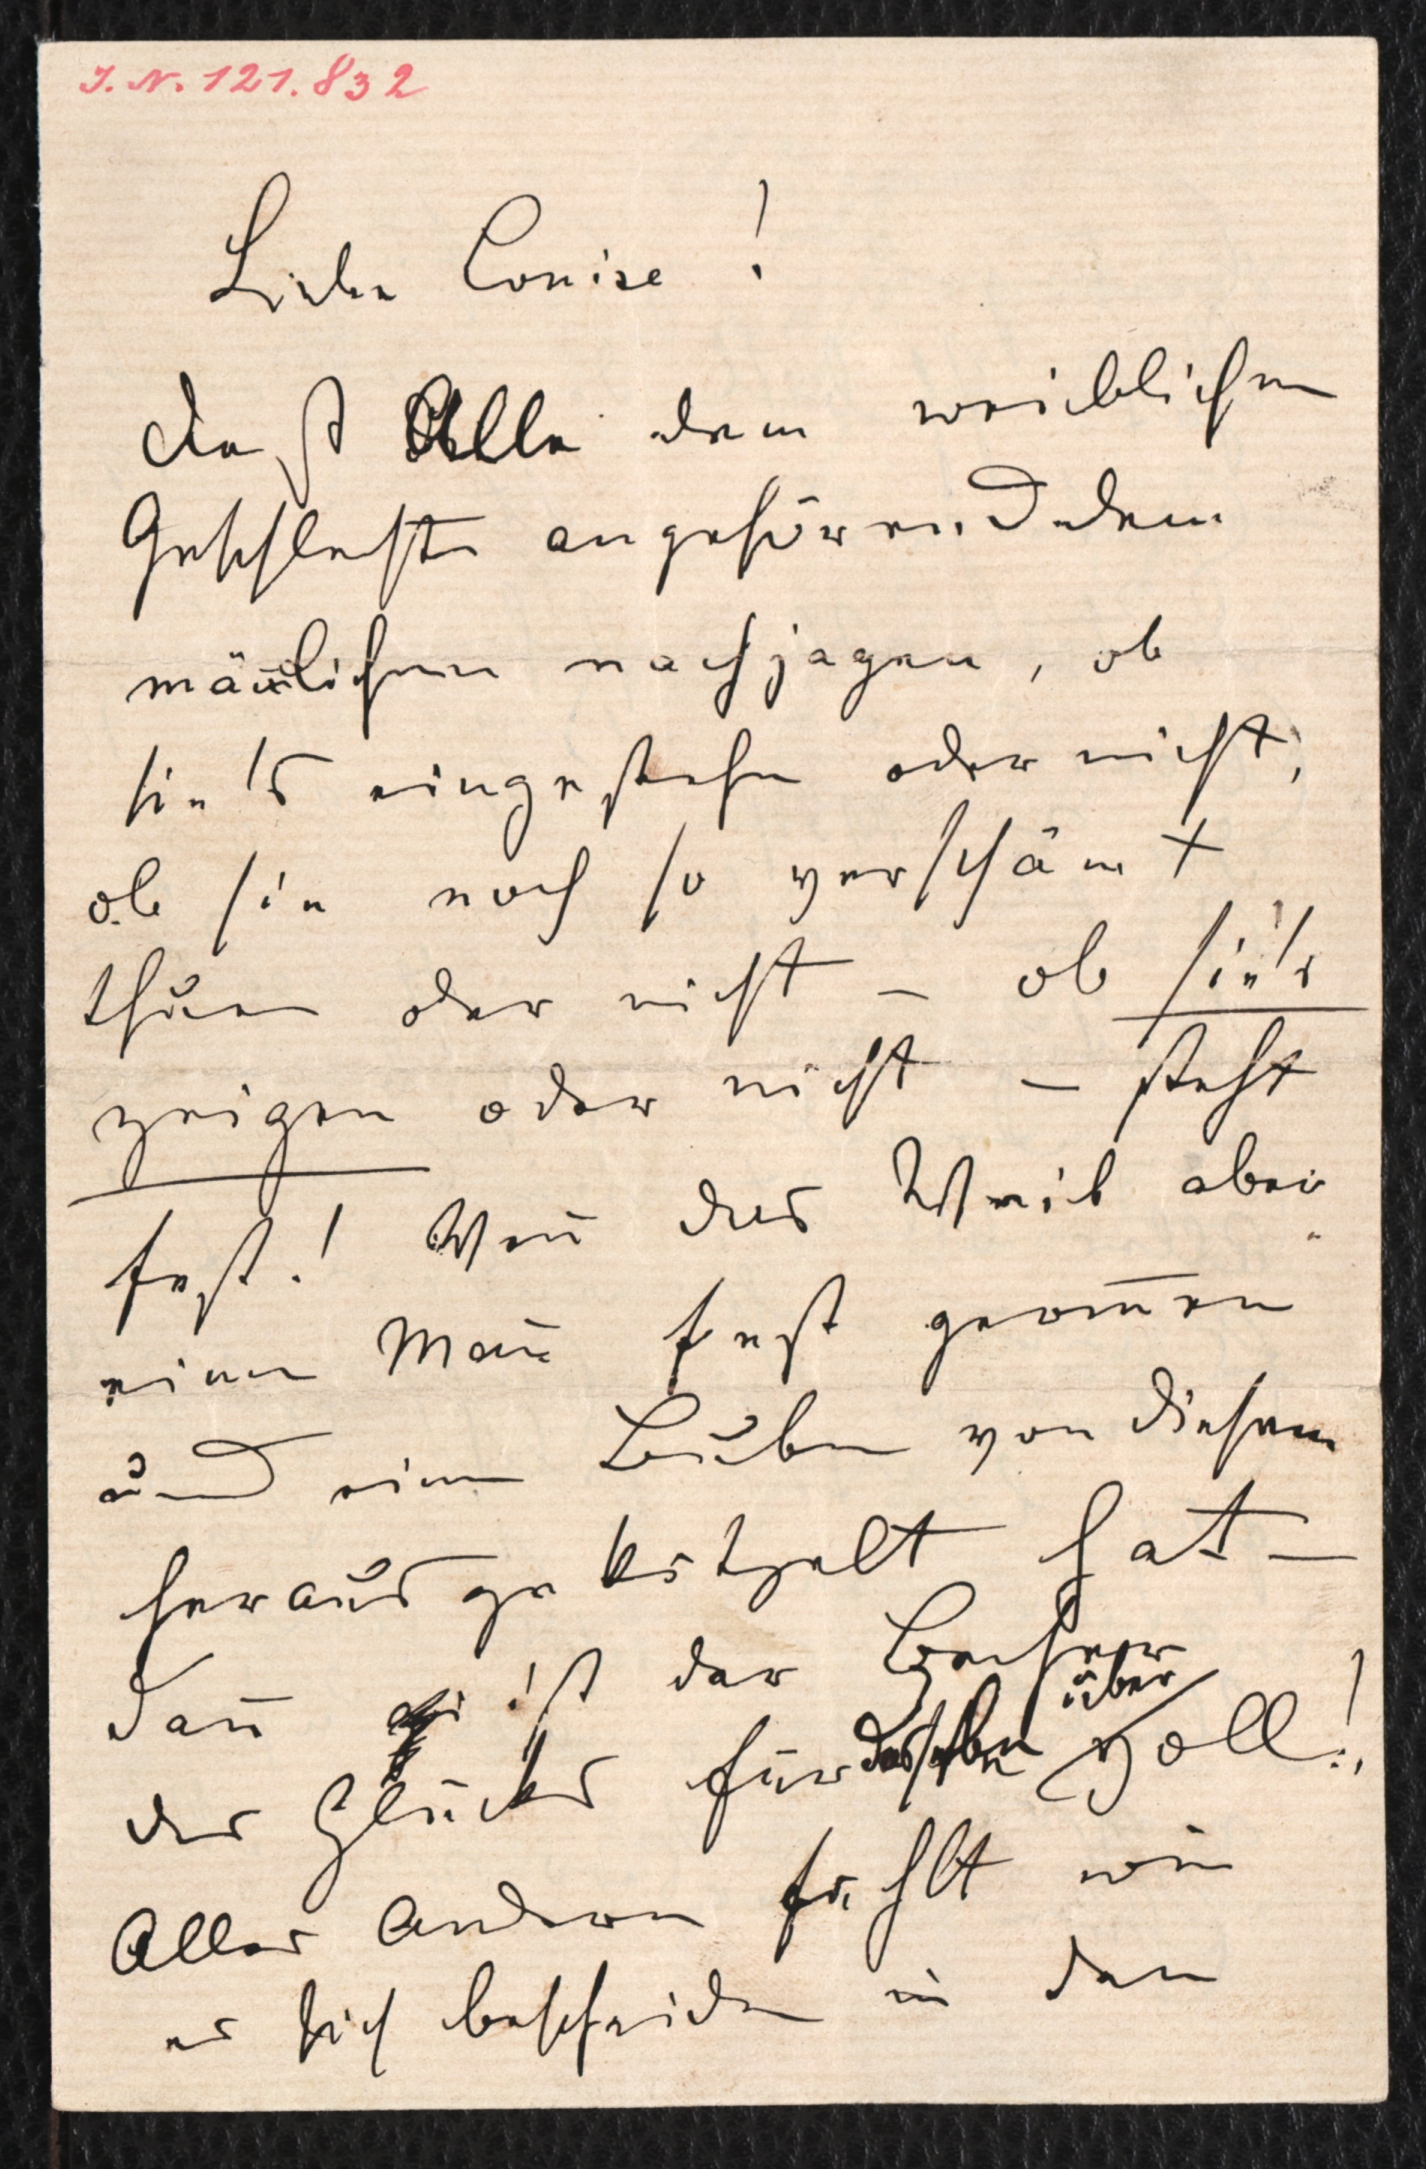 I. N. 121.832
Liebe Louise!
Daß Alle dem weiblichen
Geschlechte angehörend dem
mänlichen nachjagen, ob
sie's eingestehen oder nicht,
ob sie noch so verschämt
thuen oder nicht – ob sie's
zeigen oder nicht – steht
fest! Wen̄ das Weib aber
einen Man̄ fest genom̄en
und einen Buben von diesem
herausgekitzelt hat –
dan̄ ist der Becher
des Glücks für dasselbe übervoll!
Alles Andere fühlt wie
es sich bescheiden in den